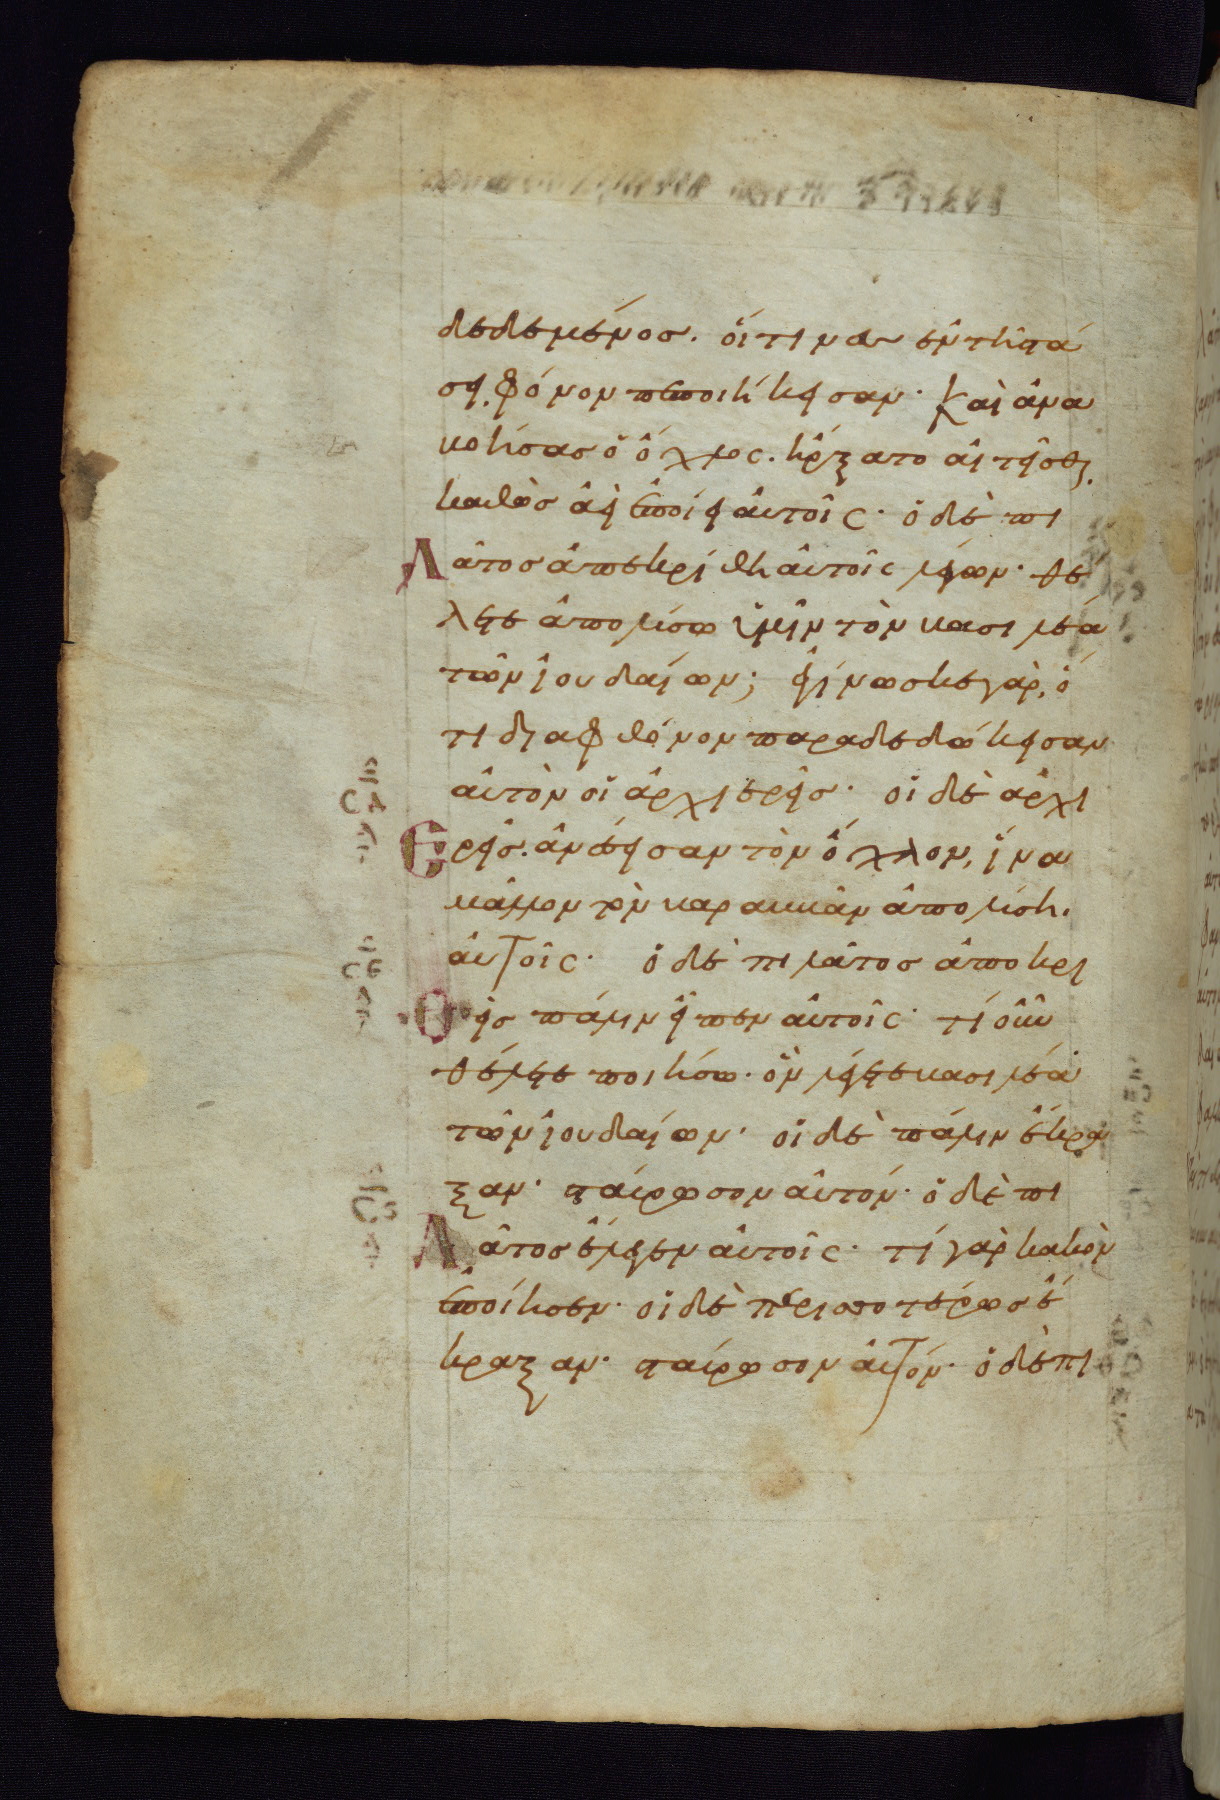 δεδεμένος. οἵτινες ἐν τῆ στά
σει φόνον πεποιήκεισαν· καὶ ἀνα
βοήσας ὁ ὄχλος. ἤρξατο αἰτεῖσθαι.
καθὼς ἀεὶ ἐποίει αὐτοῖς· ὁ δὲ πι
λάτος ἀπεκρίθη αὐτοῖς λέγων· θέ
λετε ἀπολύσω ὑμῖν τὸν βασιλέα
τῶν ἰουδαίων; ἐγίνωσκε γὰρ, ὅ
τι διὰ φθόνον παραδεδώκεισαν
αὐτὸν οἱ ἀρχιερεῖς· οἱ δὲ ἀρχι
ερεῖς ἀνέσεισαν τὸν ὄχλον, ἵνα
μᾶλλον τὸν βαραββᾶν ἀπολύση.
αὐτοῖς· ὁ δὲ πιλάτος ἀποκρι
θεὶς πάλιν εἶπεν αὐτοῖς· τί οὖν
θέλετε ποιήσω· ὃν λέγετε βασιλέα
τῶν ἰουδαίων· οἱ δὲ πάλιν ἔκρα
ξαν· σταύρωσον αὐτόν· ὁ δὲ πι
λάτος ἔλεγεν αὐτοῖς· τί γὰρ κακὸν
ἐποίησεν· οἱ δὲ περισσοτέρως ἔ
κραξαν· σταύρωσον αὐτόν· ὁ δὲ πι